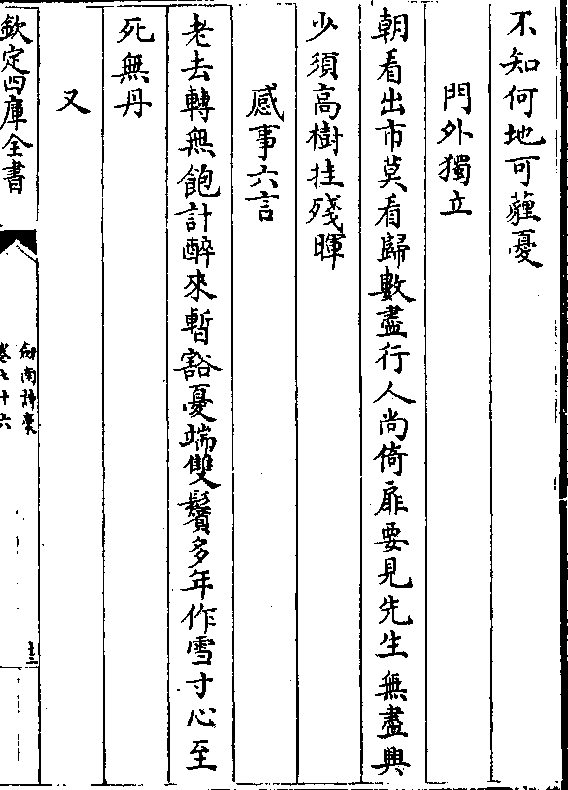 不知何地可薶憂
門外獨立
朝看出市莫看歸數盡行人尚倚扉要見先生無盡興
少須高樹挂殘暉
感事六言
老去轉無飽計醉來暫豁憂端雙鬢多年作雪寸心至
死無丹
又
欽定四庫全書
劍南詩稾
卷七十六